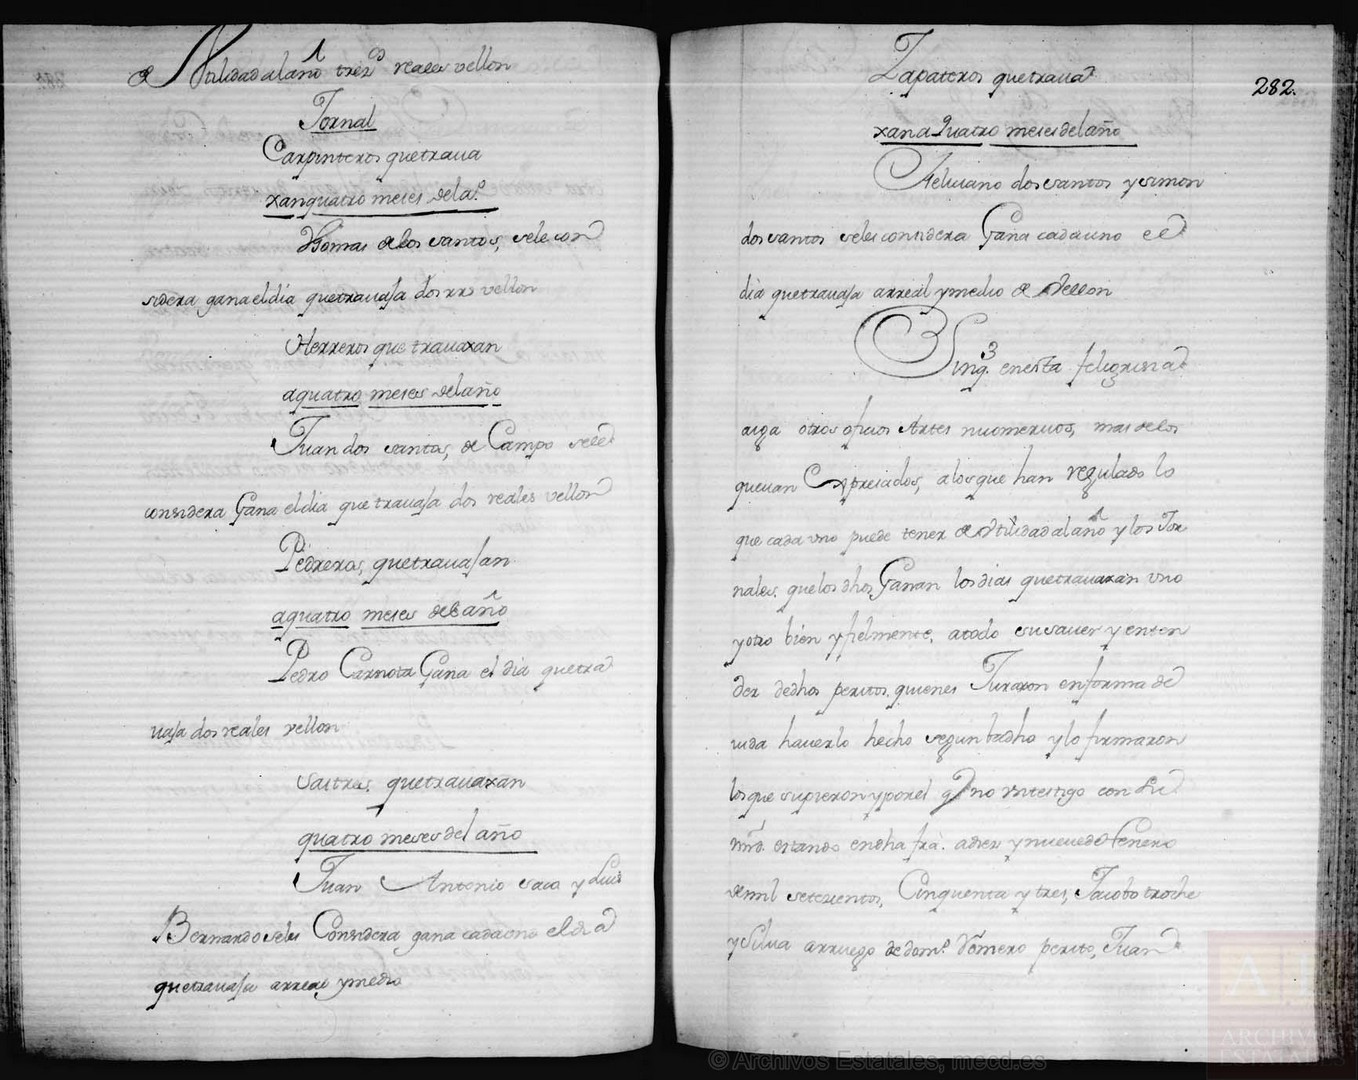 de Utilidad al año tres reales vellon
Jornal
Carpinteros que traua
xan quatro meses del aº
Thomas de los santos, sele con
sidera gana el dia que trauaja dos rrs vellon
Herreros que trauaxan
a quatro meses del año
Juan dos santos, de Campo sele
considera Gana el dia que trauaja dos reales vellon
Pedreros, que trauajan
a quatro meses del año
Pedro Carnota Gana el dia que tra
uaja dos reales vellon
Sastres que trauaxan
quatro meses del año
Juan Antonio saco y Luis
Bernardo seles Considera gana cada uno el dia
que trauaja a rreal y medio
Zapateros que traua
282.
xan a Quatro meses del año
Feliciano dos santos y simon
dos santos seles considera Gana cada uno el
dia que trauaja a rreal y medio de Vellon
Sin q. en esta feligresia
aiga otros oficios Artes nu omeruos, mas de los
que uan Expresados, a los que han regulado lo
que cada uno puede tener de Utilidad al año y los Jor
nales que los dhos Ganan los dias que trauaxan uno
y otro bien y fielmente, a todo su sauer y enten
der de dhos peritos quienes Juraron en forma de
uida hauerlo hecho segun ba dho y lo firmaron
los que supieron y por el q no un testigo con su
mrd. estando en dha fra. a diez y nueue de Henero
de mil setecientos, Cinquenta y tres, Jacobo troche
y Silua a rruego de Domº Romero perito, Juan
© Archivos Estatales, mecd.es
ARCHIVOS
ESTATALES